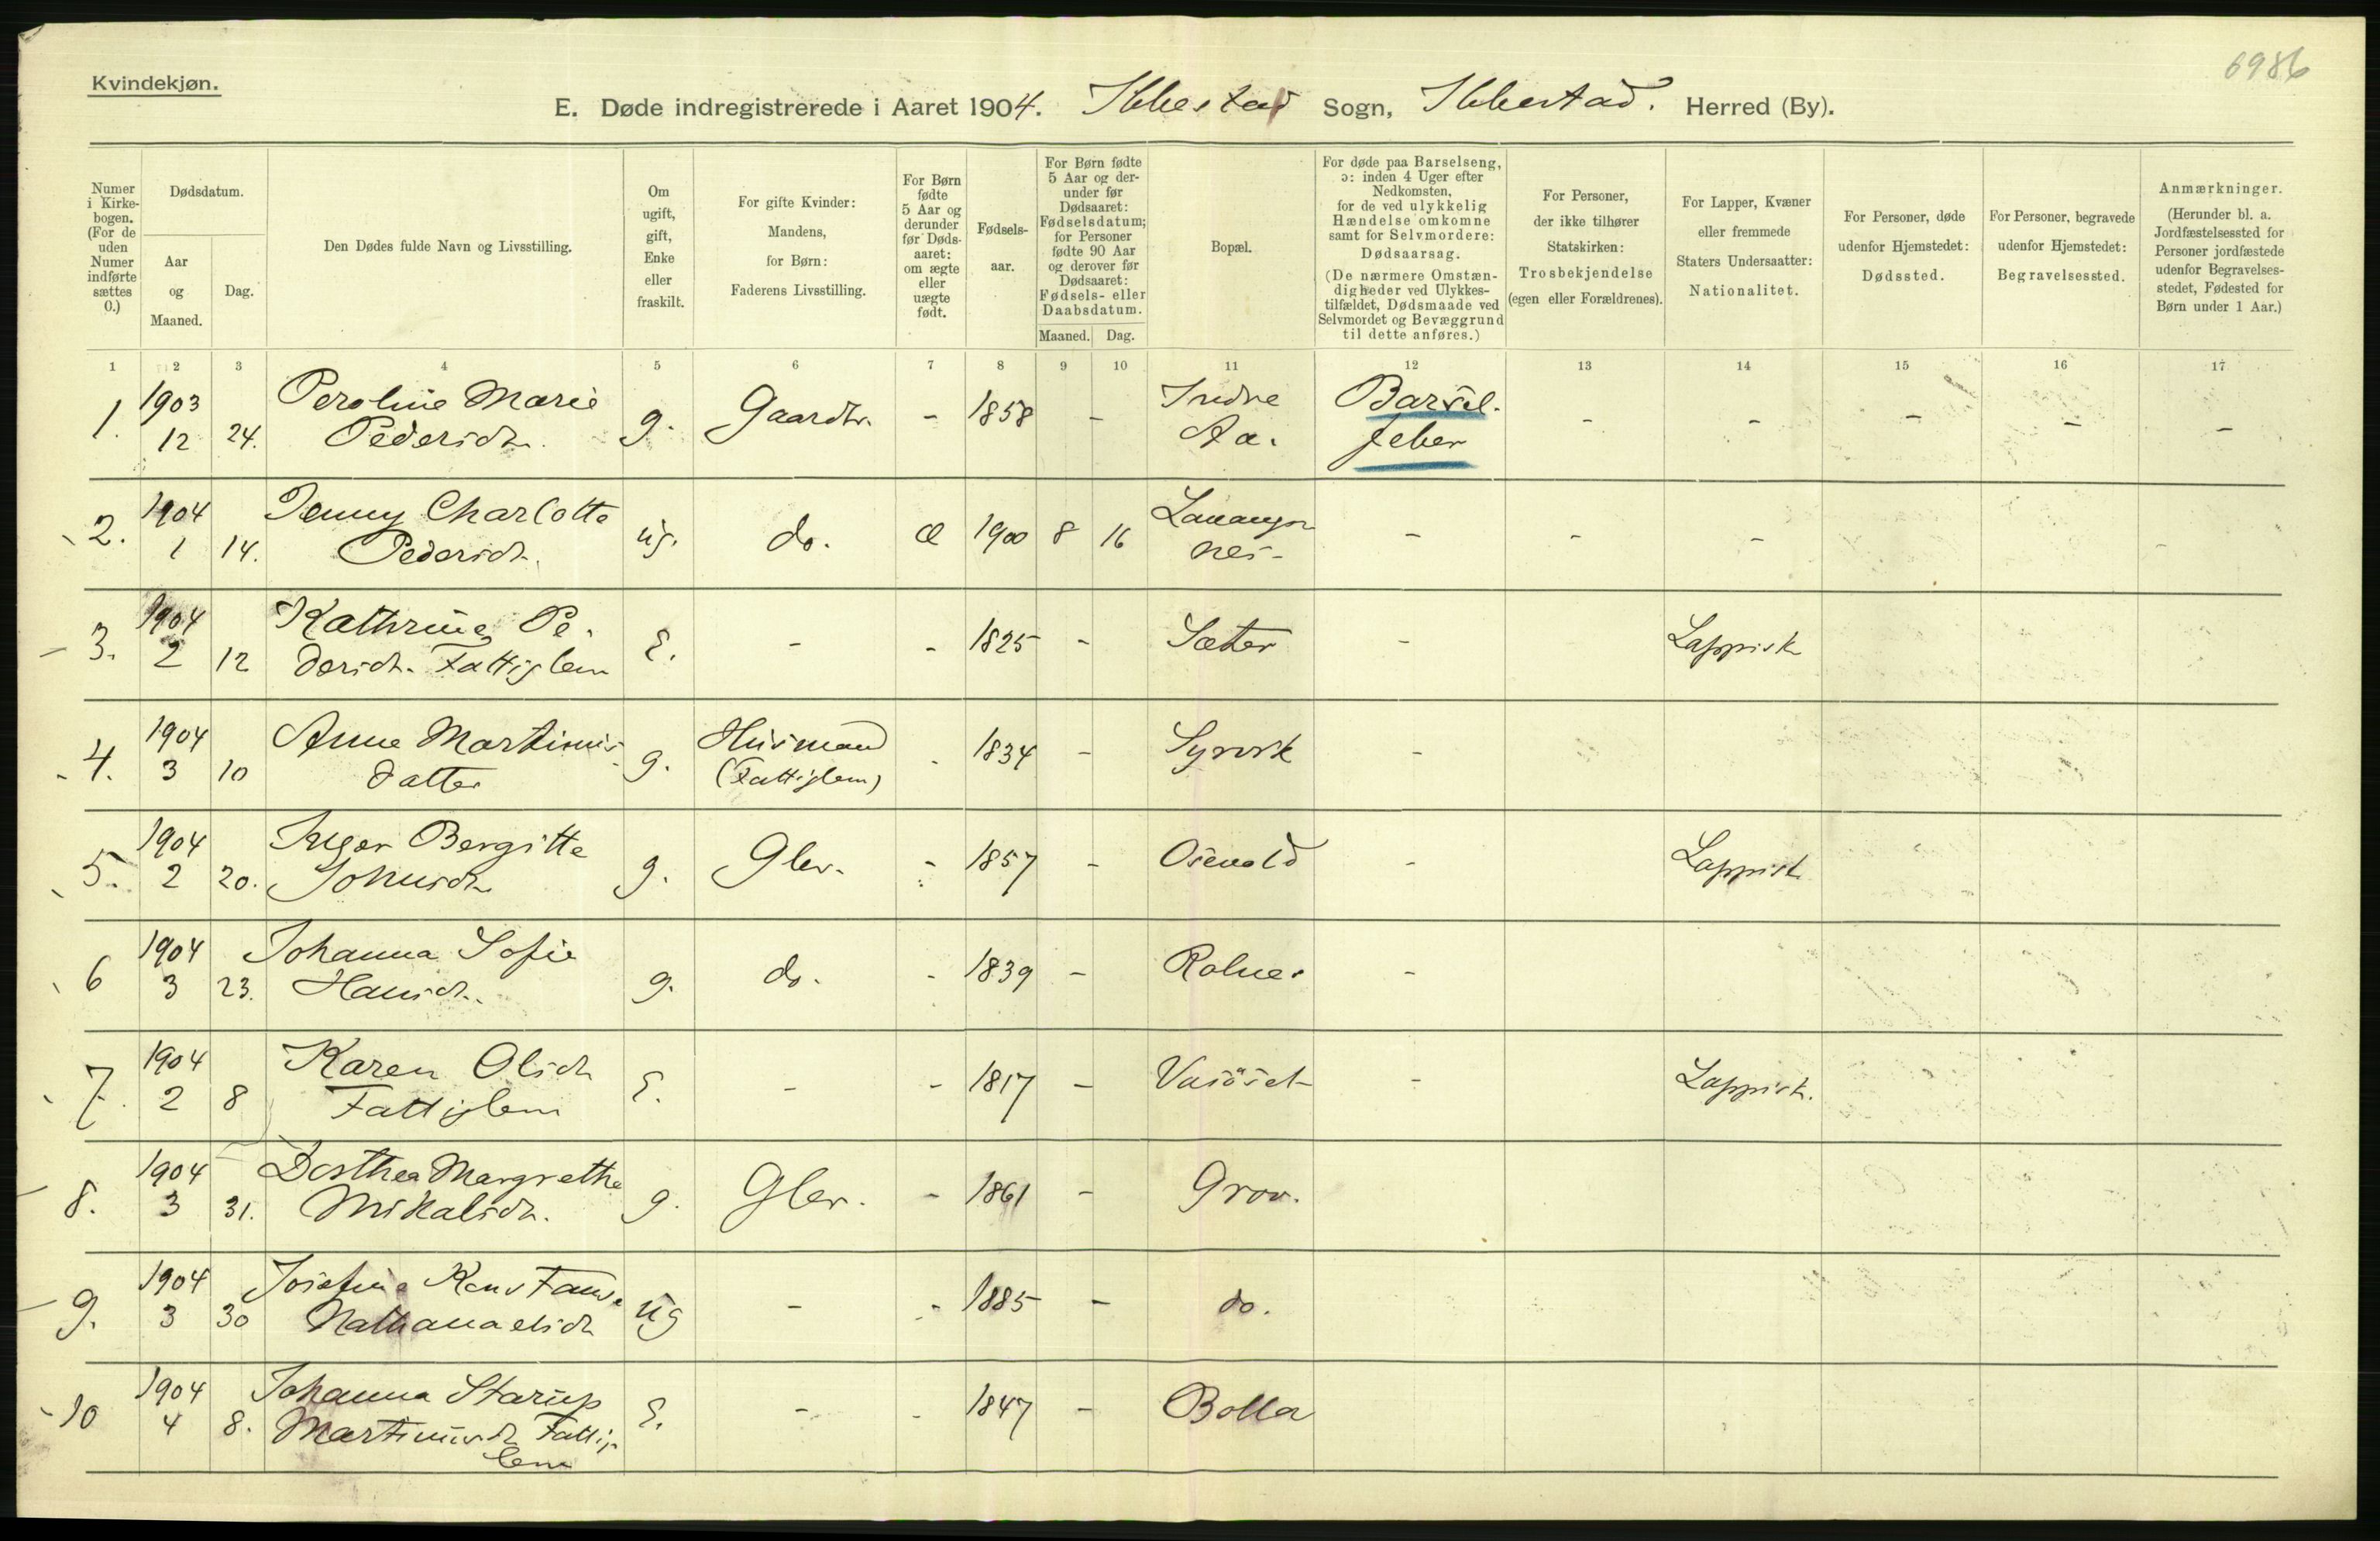 6986
Kvindekjøn.
E. Døde indregistrerede i Aaret 1904. Ibbestad Sogn, Ibbestad. Herred (By).
Numer i Kirkebogen. (For de uden Numer indførte sættes 0.)
Dødsdatum.
Aar og Maaned.
Dag.
Den Dødes fulde Navn og Livsstilling.
Om ugift, gift, Enke eller fraskilt.
For gifte Kvinder: Mandens, for Børn: Faderens Livsstilling.
For Børn fødte 5 Aar og derunder før Dødsaaret: om ægte eller uægte født.
Fødselsaar.
For Børn fødte 5 Aar og derunder før Dødsaaret: Fødselsdatum; for Personer fødte 90 Aar og derover før Dødsaaret: Fødsels- eller Daabsdatum.
Maaned. Dag.
Bopæl.
For døde paa Barselseng, ɔ: inden 4 Uger efter Nedkomsten, for de ved ulykkelig Hændelse omkomne samt for Selvmordere: Dødsaarsag.
(De nærmere Omstændigheder ved Ulykkestilfældet, Dødsmaade ved Selvmordet og Bevæggrund til dette anføres.)
For Personer, der ikke tilhører Statskirken: Trosbekjendelse (egen eller Forældrenes).
For Lapper, Kvæner eller fremmede Staters Undersaatter: Nationalitet.
For Personer, døde udenfor Hjemstedet: Dødssted.
For Personer, begravede udenfor Hjemstedet: Begravelsessted.
Anmærkninger.
(Herunder bl. a. Jordfæstelsessted for Personer jordfæstede udenfor Begravelsesstedet, Fødested for Børn under 1 Aar.)
1 2 3 4 5 6 7 8 9 10 11 12 13 14 15 16 17
1. 1903 12 24. Peroline Marie Pedersdt. g. Gaardbr. - 1858 - Indre Aa. Barsel- feber - - - - -
2. 1904 1 14. Jenny Charlotte Pedersdt. ug. do. Æ 1900 8 16 Lavangsnes - - -
3. 1904 2 12 Kathrine Pedersdt. Fattiglem E. - - 1825 - Sæter - Lappisk
4. 1904 3 10 Anne Martinusdatter g. Husmand (Fattiglem) - 1834 - -
5. 1904 2 20. Inger Bergitte Johnsdt. g. Gbr. - 1857 - Osevold - Lappisk
6 1904 3 23. Johanna Sofie Hansdt. g. do. - 1839 - Rolnes -
7. 1904 2 8 Karen Olsdt. Fattiglem E. - - 1817 - - Lappisk.
8. 1904 3 31. Dorthea Margrethe Mikalsdt. g. Gbr. - 1861 - Grov.
9. 1904 3 30 Josefine Konstanse Nathanaelsdt ug - - 1885 - do.
10 1904 4 8. Johanna Starup Martinusdt. Fattiglem E. - - 1847 - Bolla